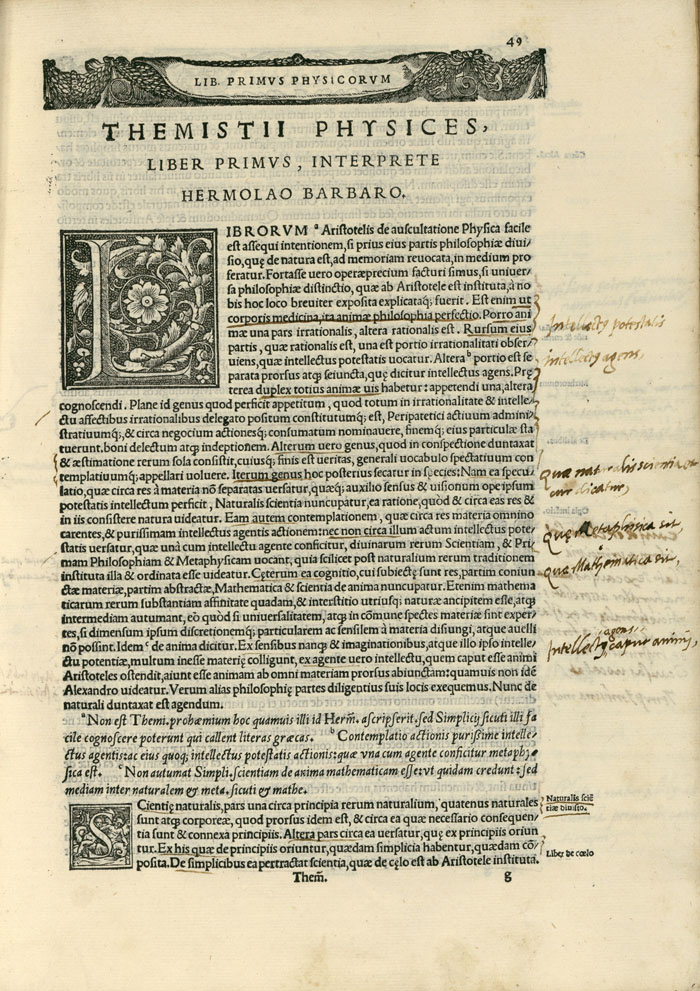 49
LIB. PRIMVS PHYSICORVM
THEMISTII PHYSICES,
LIBER PRIMVS, INTERPRETE
HERMOLAO BARBARO.
LIBRORVM ª Aristotelis de auscultatione Physica facile
est assequi intentionem, si prius eius partis philosophiæ diui/
sio, quę de natura est, ad memoriam reuocata, in medium pro
feratur. Fortasse uero operæprecium facturi simus, si uniuer/
sa philosophiæ distinctio, quæ ab Aristotele est instituta, à no
bis hoc loco breuiter exposita explicataq; fuerit. Est enim ut
corporis medicina, ita animæ philosophia perfectio. Porro ani
mæ una pars irrationalis, altera rationalis est. Rursum eius
partis, quæ rationalis est, una est portio irrationalitati obser/
uiens, quæ intellectus potestatis uocatur. Altera ᵇ portio est se
parata prorsus atq; seiuncta, quę dicitur intellectus agens. Prę
terea duplex totius animæ uis habetur: appetendi una, altera
cognoscendi. Plane id genus quod perficit appetitum, quod totum in irrationalitate & intelle/
ctu affectibus irrationalibus delegato positum constitutumq; est, Peripatetici actiuum admini/
stratiuumq;, & circa negocium actionesq; consumatum nominauere, finemq; eius particulæ sta
tuerunt, boni delectum atq; indeptionem. Alterum uero genus, quod in conspectione duntaxat
& æstimatione rerum sola consistit, cuiusq; finis est ueritas, generali uocabulo spectatiuum con
templatiuumq; appellari uoluere. Iterum genus hoc posterius secatur in species: Nam ea specu/
latio, quæ circa res à materia nō separatas uersatur, quæq; auxilio sensus & uisionum ope ipsum
potestatis intellectum perficit, Naturalis scientia nuncupatur, ea ratione, quòd & circa eas res &
in iis consistere natura uideatur. Eam autem contemplationem, quæ circa res materia omnino
carentes, & purissimam intellectus agentis actionem: nec non circa illum actum intellectus pote/
statis uersatur, quæ unà cum intellectu agente conficitur, diuinarum rerum Scientiam, & Pri
mam Philosophiam & Metaphysicam uocant, quia scilicet post naturalium rerum traditionem
instituta illa & ordinata esse uideatur. Cęterum ea cognitio, cui subiectę sunt res, partim coniun
ctæ materiæ, partim abstractæ, Mathematica & scientia de anima nuncupatur. Etenim mathema
ticarum rerum substantiam affinitate quadam, & interstitio utriusq; naturæ ancipitem esse, atq;
intermediam autumant, eò quòd si uniuersalitatem, atq; in cōmune spectes materiæ sint exper/
tes, si demensum ipsum discretionemq; particularem ac sensilem à materia disiungi, atque auelli
nō possint. Idem ᶜ de anima dicitur. Ex sensibus nanq; & imaginationibus, atque illo ipso intelle/
ctu potentiæ, multum inesse materię colligunt, ex agente uero intellectu, quem caput esse animi
Aristoteles ostendit, aiunt esse animam ab omni materiam prorsus abiunctam: quamuis non idē
Alexandro uideatur. Verum alias philosophię partes diligentius suis locis exequemus. Nunc de
naturali duntaxat est agendum.
ªNon est Themi. prohœmium hoc quamuis illi id Herm̄. ascripserit. sed Simplicij sicuti illi fa
cile cognoscere poterunt qui callent literas græcas. ᵇ Contemplatio actionis purißime intelle/
ctus agentis: tac eius quoq; intellectus potestatis actionis: quæ vna cum agente conficitur metaphy
sica est. ᶜ Non autumat Simpli. scientiam de anima mathematicam esse: vt quidam credunt: sed
mediam inter naturalem & meta. sicuti & mathe.
SCientię naturalis, pars una circa principia rerum naturalium, quatenus naturales
sunt atq; corporeæ, quod prorsus idem est, & circa ea quæ necessario consequen/
tia sunt & connexa principiis. Altera pars circa ea uersatur, quę ex principiis oriun
tur. Ex his quæ de principiis oriuntur, quædam simplicia habentur, quædam cō/
posita. De simplicibus ea pertractat scientia, quæ de cęlo est ab Aristotele instituta.
Them̄.
g
Intellectꝰ potestatis
intellectꝰ agens,
Quæ naturalis scientia
dicatur,
Quę Metaphisica sit,
Quæ Mathematica sit,
Intellectꝰ agens caput animi,
Naturalis sciē
tiæ diuisio.
Liber de cœlo